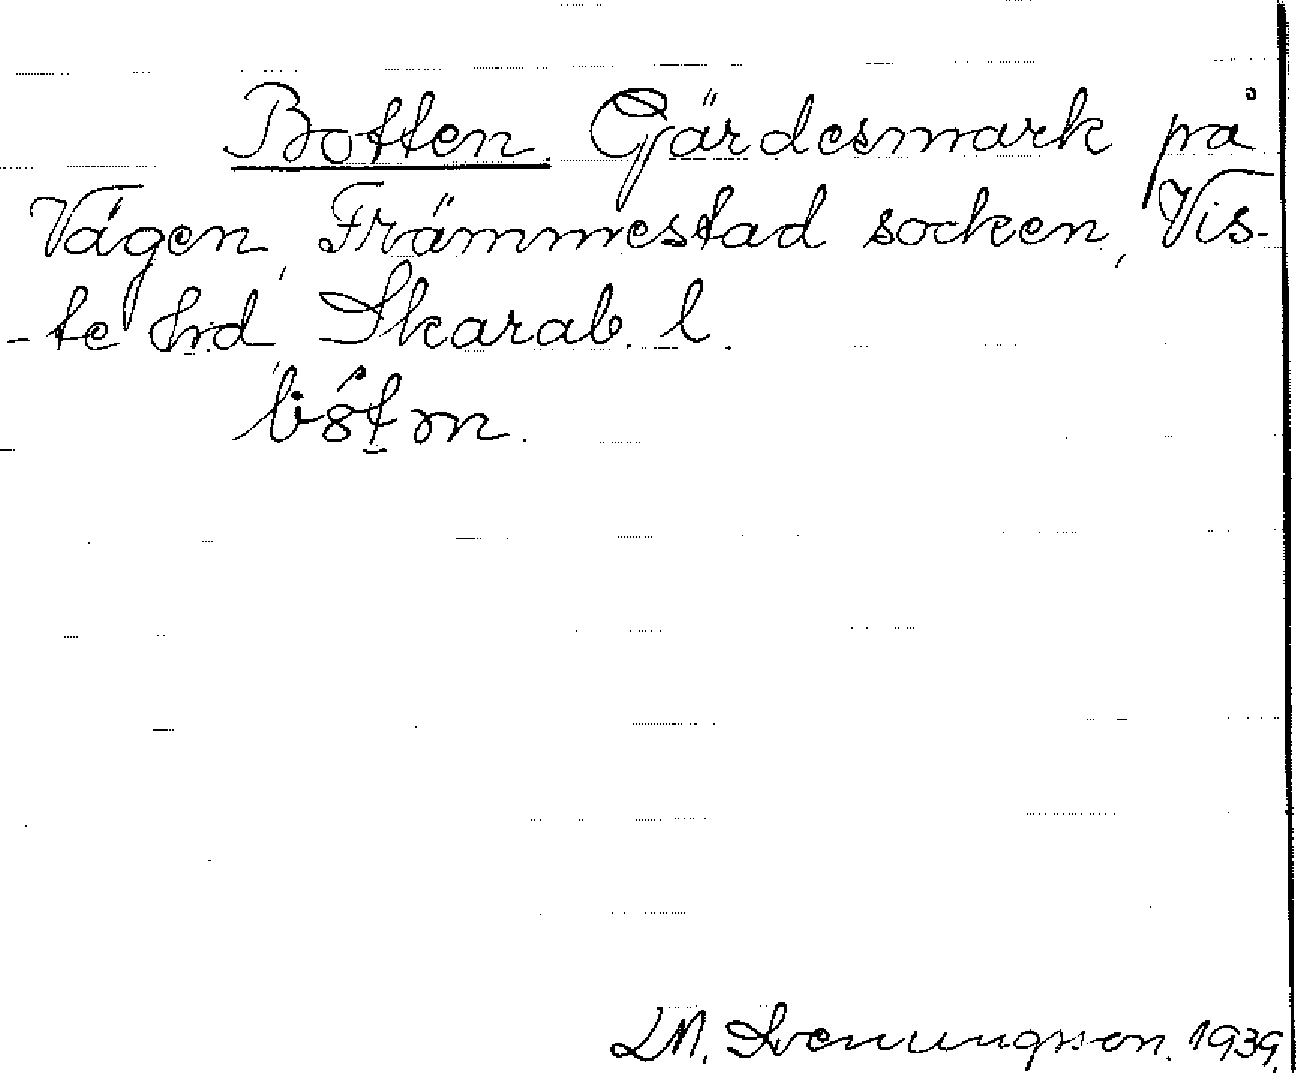 Botten. Gärdesmark på
Vågen, Främmestad socken, Vis-
-te hd, Skarab. l.
L.M. Svenungsson. 1939.